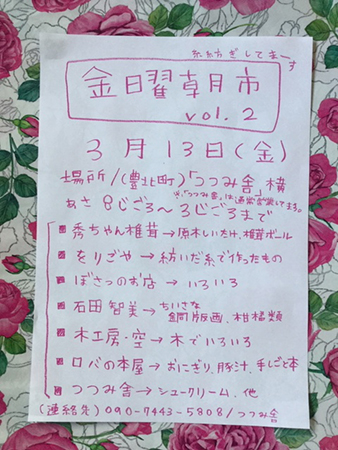 糸紡ぎしてまーす
金曜朝市
vol.2
3月13日(金)
場所/(豊北町)「つつみ舎」横
※「つつみ舎」は通常営業してます。
あさ8じごろ〜3じごろまで
秀ちゃん椎茸→原木しいたけ、椎茸ボール
をりごや→紡いだ糸で作ったもの
ぼさつのお店→いろいろ
石田智美→ちいさな銅版画、柑橘類
木工房・空→木でいろいろ
ロバの本屋→おにぎり、豚汁、手しごと本
つつみ舎→シュークリーム、他
(連絡先)090-7443-5808/つつみ舎